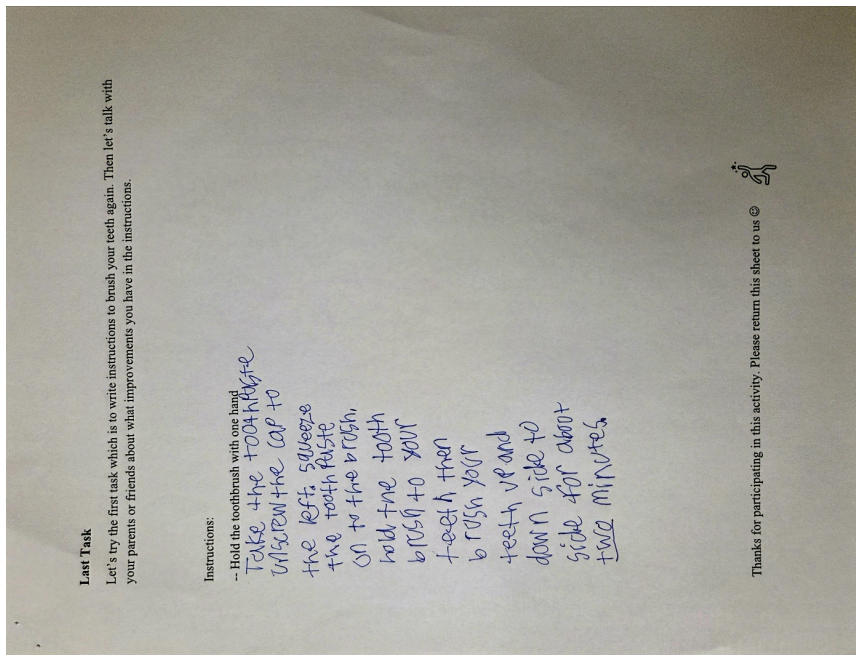 Last Task
Let's try the first task which is to write instructions to brush your teeth again. Then let's talk with
your parents or friends about what improvements you have in the instructions.
Instructions:
-- Hold the toothbrush with one hand
Take the toothpaste
unscrew the cap to
the left. squeeze
the tooth paste
on to the brush.
hold the tooth
brush to your
teeth then
brush your
teeth up and
down side to
side for about
two minutes.
Thanks for participating in this activity. Please return this sheet to us ☺